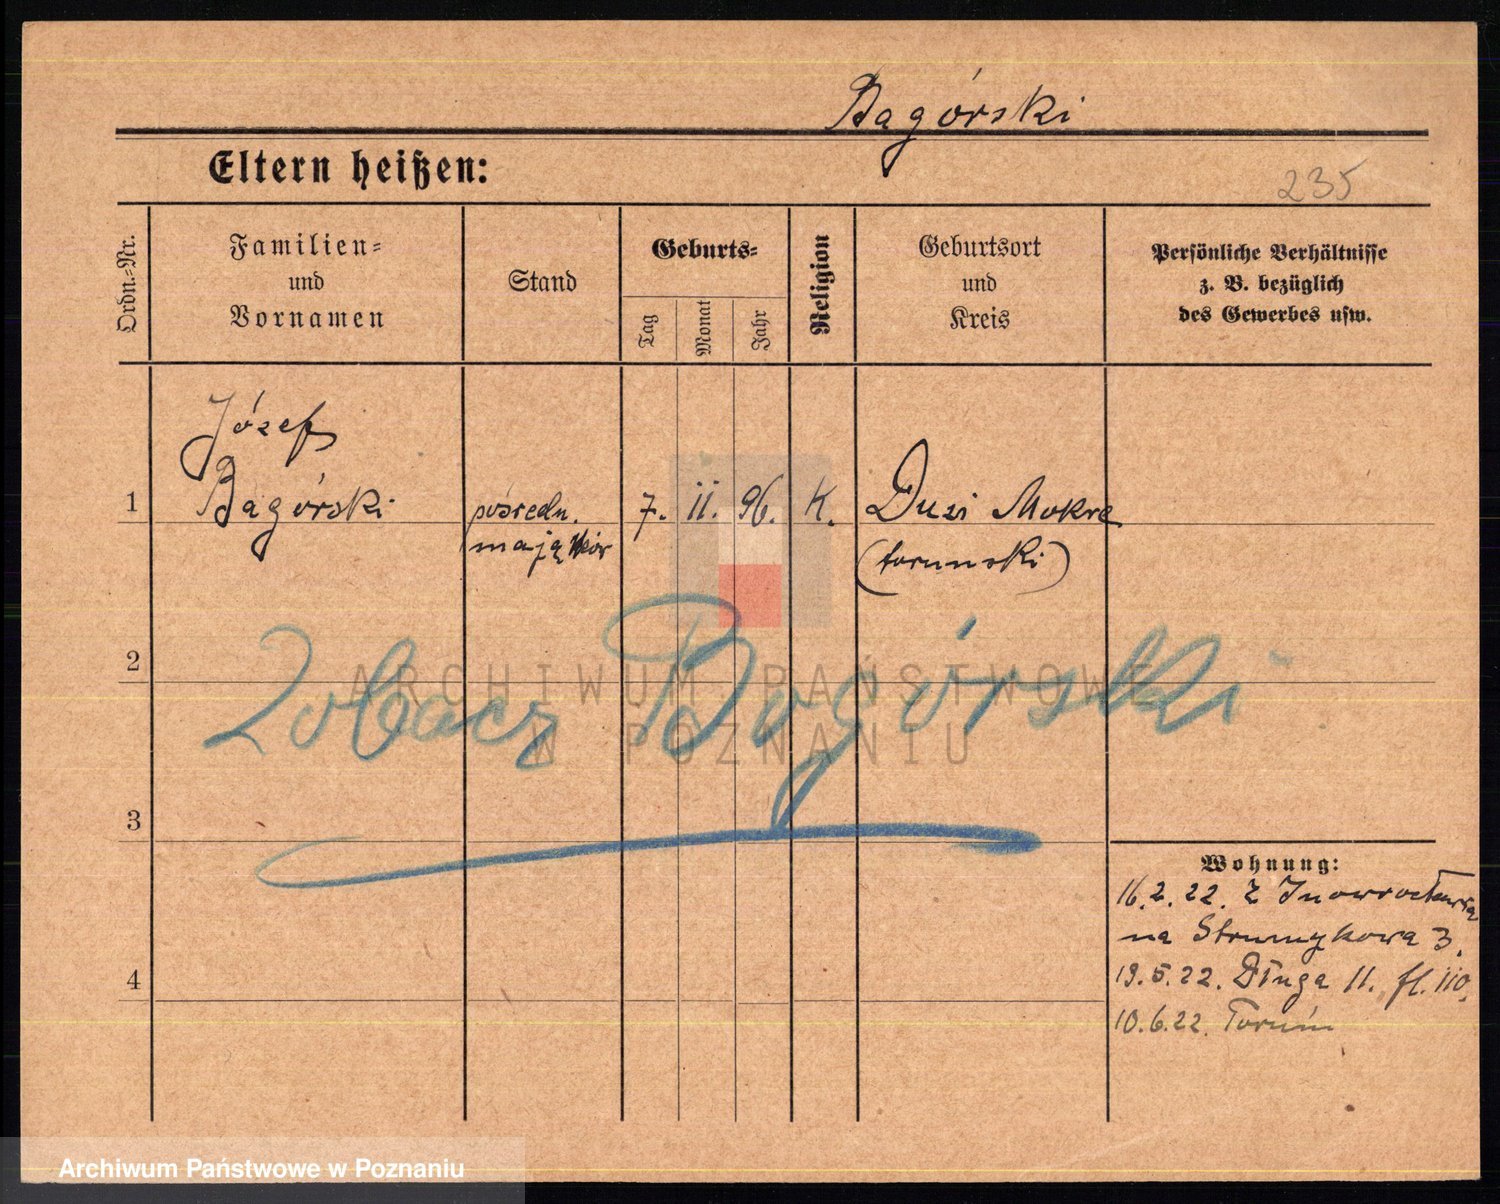 Bagórski
Eltern heißen:
235
Ordn.-Nr.
Familien-
und
Vornamen
Stand
Geburts-
Tag
Monat
Jahr
Religion
Geburtsort
und
Kreis
Persönliche Verhältnisse
z. B. bezüglich
des Gewerbes usw.
Józef
1 Bagórski pośredn. 7. 11. 96. K. Duzi Mokre
majątków (toruński)
2
Zobacz Bogórski
ARCHIWUM PAŃSTWOWE
W POZNANIU
3
Wohnung:
16.2.22. z Inowrocławia
na Strumykowa 3.
4
19.5.22. Długa 11. fl. 110.
10.6.22. Toruń
Archiwum Państwowe w Poznaniu